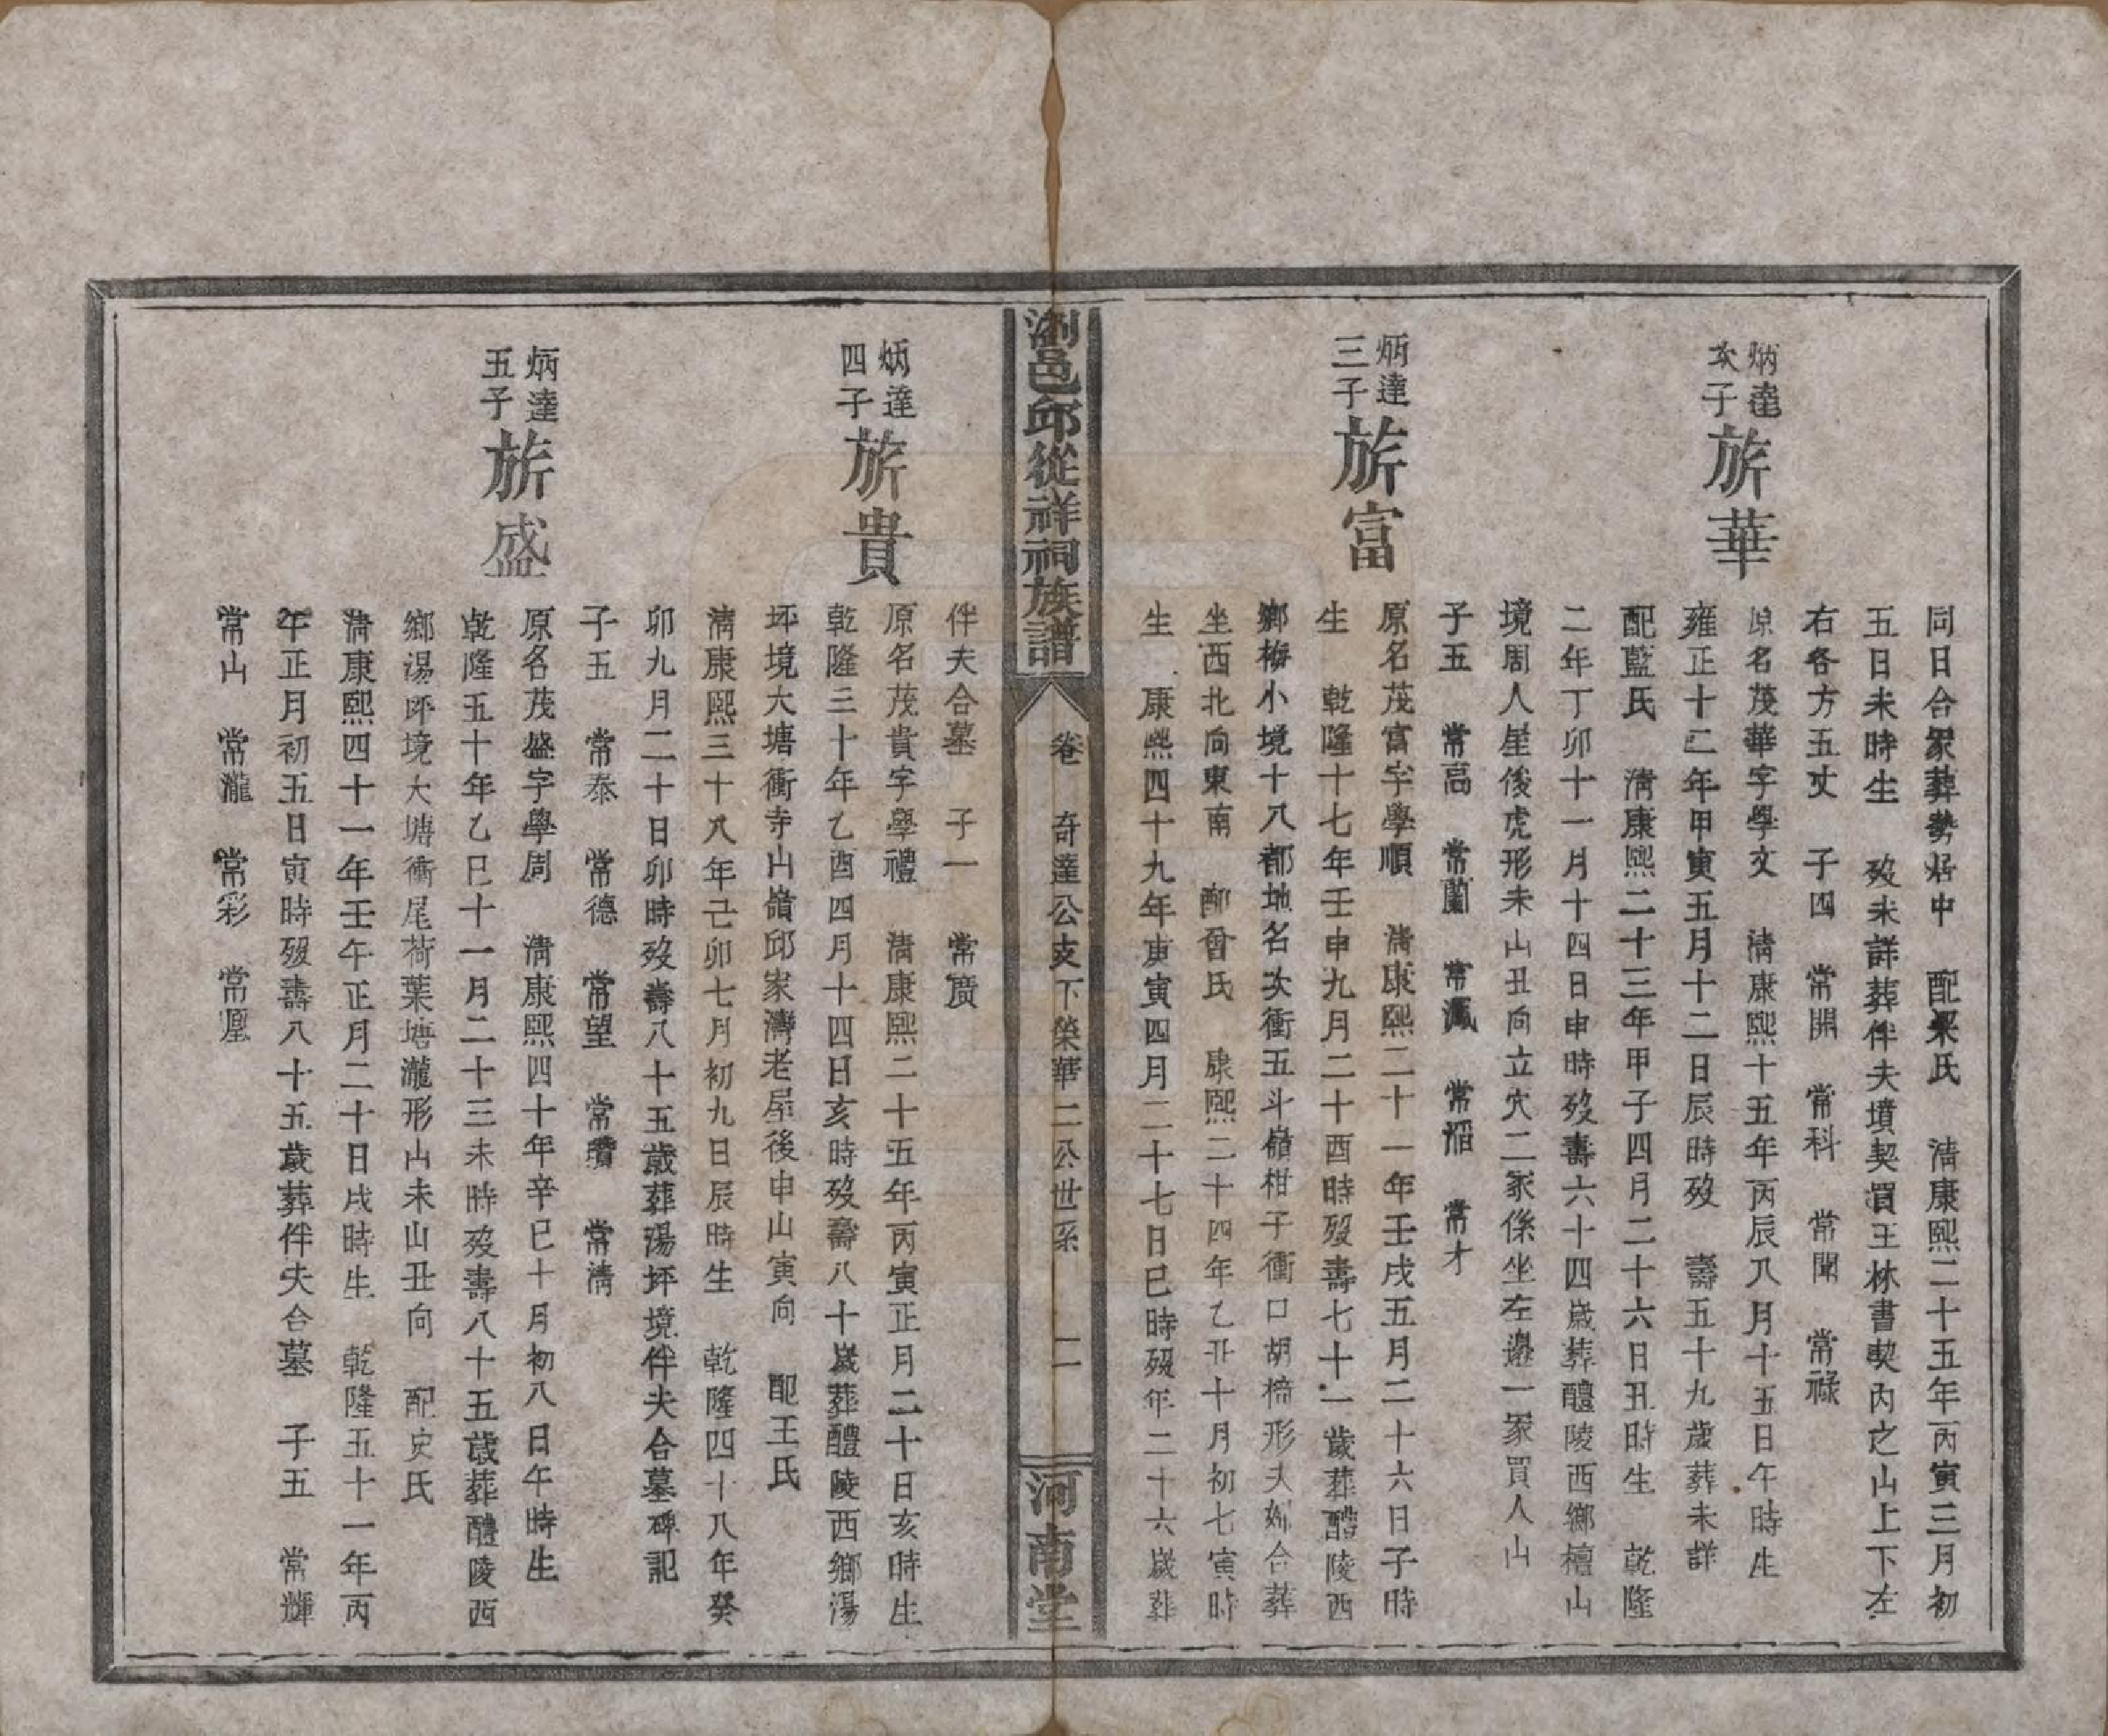 同日合冢葬勢居中　配梁氏　清康熙二十五年丙寅三月初
五日未時生　歿未詳葬伴夫墳契買王林書契內之山上下左
右各方五丈　子四　常開　常科　常聞　常祿
炳達次子
旂華
原名茂華字學文　清康熙十五年丙辰八月十五日午時生
雍正十二年甲寅五月十二日辰時歿　壽五十九歲葬未詳
配藍氏　清康熙二十三年甲子四月二十六日丑時生　乾隆
二年丁卯十一月十四日申時歿壽六十四歲葬醴陵西鄉檀山
境周人屋後虎形未山丑向立穴二冢係坐左邊一冢買人山
子五　常高　常蘭　常　常　常才
炳達三子
旂富
原名茂富字學順　清康熙二十一年壬戌五月二十六日子時
生　乾隆十七年壬申九月二十酉時歿壽七十一歲葬醴陵西
鄉梅小境十八都地名次衝五斗嶺柑子衝口胡椅形夫婦合葬
坐西北向東南　配晉氏　康熙二十四年乙丑十月初七寅時
生　康熙四十九年庚寅四月二十七日巳時歿年二十六歲葬
瀏邑邱從祥祠族譜
卷　奇達公支下榮華二公世系　二
河南堂
伴夫合墓　子一　常廣
炳達四子
旂貴
原名茂貴字學禮　清康熙二十五年丙寅正月二十日亥時生
乾隆三十年乙酉四月十四日亥時歿壽八十歲葬醴陵西鄉湯
坪境大塘衝寺山嶺邱家灣老屋後申山寅向　配王氏
清康熙三十八年己卯七月初九日辰時生　乾隆四十八年癸
卯九月二十日卯時歿壽八十五歲葬湯坪境伴夫合墓碑記
子五　常泰　常德　常望　常瓚　常清
炳達五子
旂盛
原名茂盛字學周　清康熙四十年辛巳十月初八日午時生
乾隆五十年乙巳十一月二十三未時歿壽八十五歲葬醴陵西
鄉湯坪境大塘衝尾荷葉塘瀧形山未山丑向　配史氏
清康熙四十一年壬午正月二十日戌時生　乾隆五十一年丙
午正月初五日寅時歿壽八十五歲葬伴夫合墓　子五　常輝
常山　常瀧　常彩　常